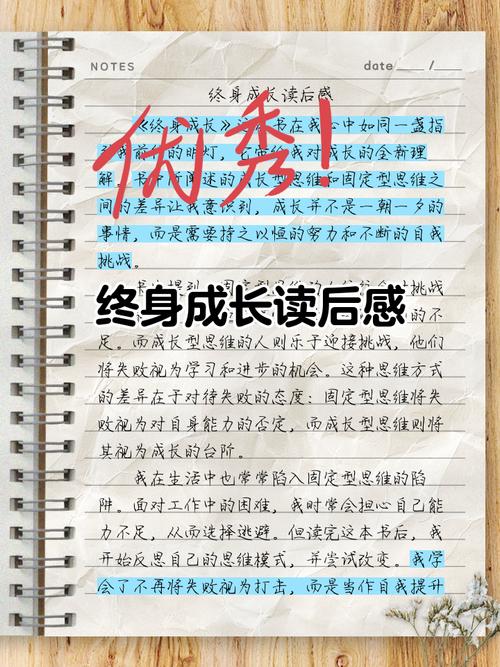 NOTES
date
终身成长读后感
《终身成长》这本书在我心中如同一盏指
我前的明灯，它带给我对成长的全新理
解。书中所阐述的成长型思维和固定型思维之
间的差异让我意识到，成长并不是一朝一夕的
事情，而是需要持之以恒的努力和不断的自我
挑战。
优秀！
提到
挑战
终身成长读后感
的不
足。而成长型思维的人则乐于迎接挑战，他们
将失败视为学习和进步的机会。这种思维方式
的差异在于对待失败的态度：固定型思维将失
败视为对自身能力的否定，而成长型思维则将
其视为成长的台阶。
我在生活中也常常陷入固定型思维的陷
阱。面对工作中的困难，我时常会担心自己能
力不足，从而选择逃避。但读完这本书后，我
开始反思自己的思维模式，并尝试改变。我学
会了不再将失败视为打击，而是当作自我提升